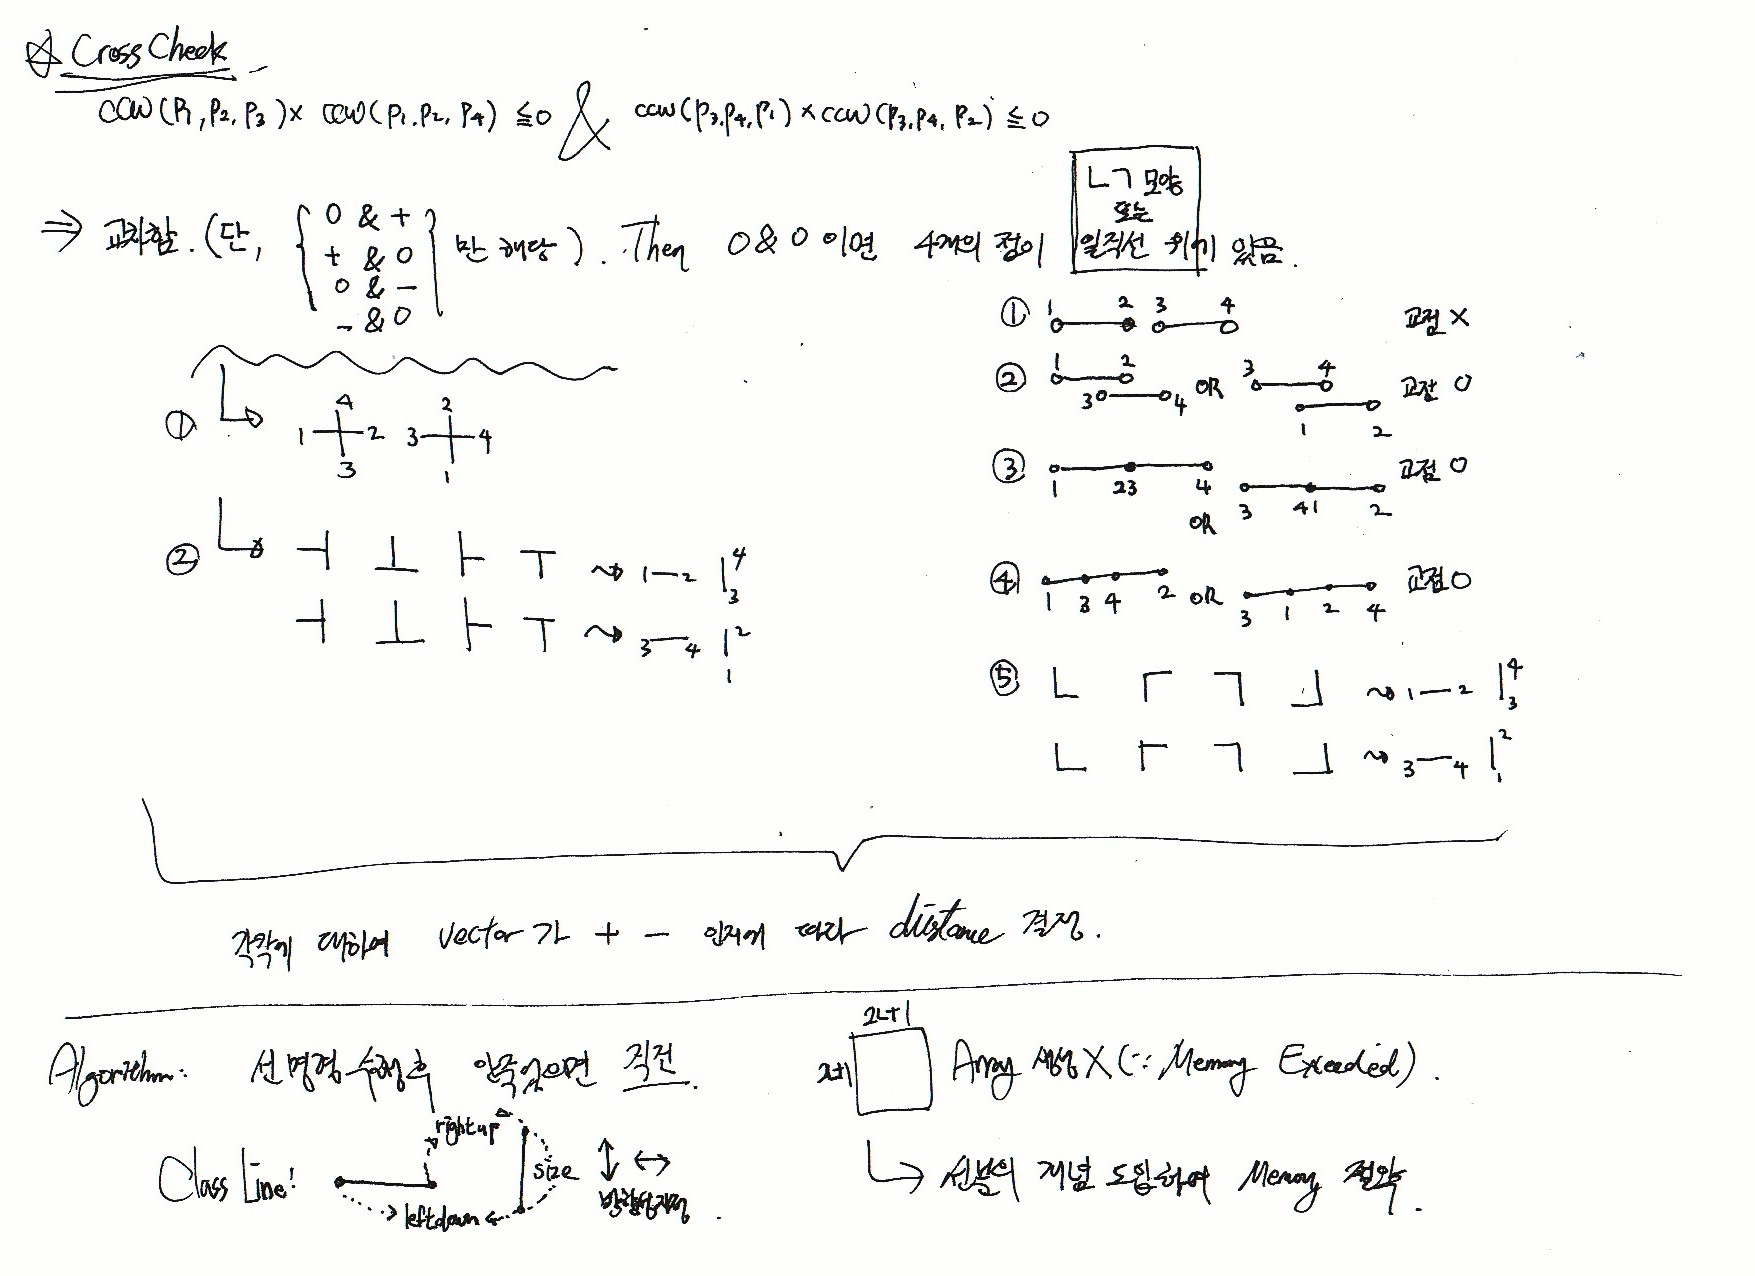 ☆ Cross Check
CCW(P1, P2, P3) × CCW(P1, P2, P4) ≦ 0 & CCW(P3, P4, P1) × CCW(P3, P4, P2) ≦ 0
⇒ 교차함. (단, { 0 & + / + & 0 / 0 & - / - & 0 } 만 해당). Then 0 & 0 이면 4개의 점이 ㄴㄱ 모양 또는 일직선 위에 있음.
① 1 2 3 4 교점 X
② 1 2 3 4 OR 3 4 1 2 교점 O
③ 1 23 4 OR 3 41 2 교점 O
④ 1 3 4 2 OR 3 1 2 4 교점 O
⑤ ㄴ ㄱ 1—2 4 3
3—4 2 1
① 4 1 2 3 2 3 4 1
② ㅓ ㅗ ㅏ ㅜ 1—2 4 3
ㅓ ㅗ ㅏ ㅜ 3—4 2 1
각각에 대하여 vector가 + - 인지에 따라 distance 결정.
Algorithm: 선 명령 수행 후 직전.
Class Line!
rightup
size
leftdown
2L+1
Array 생성 X (∵ Memory Exceeded).
↳ 선분의 개념 도입하여 Memory 절약.